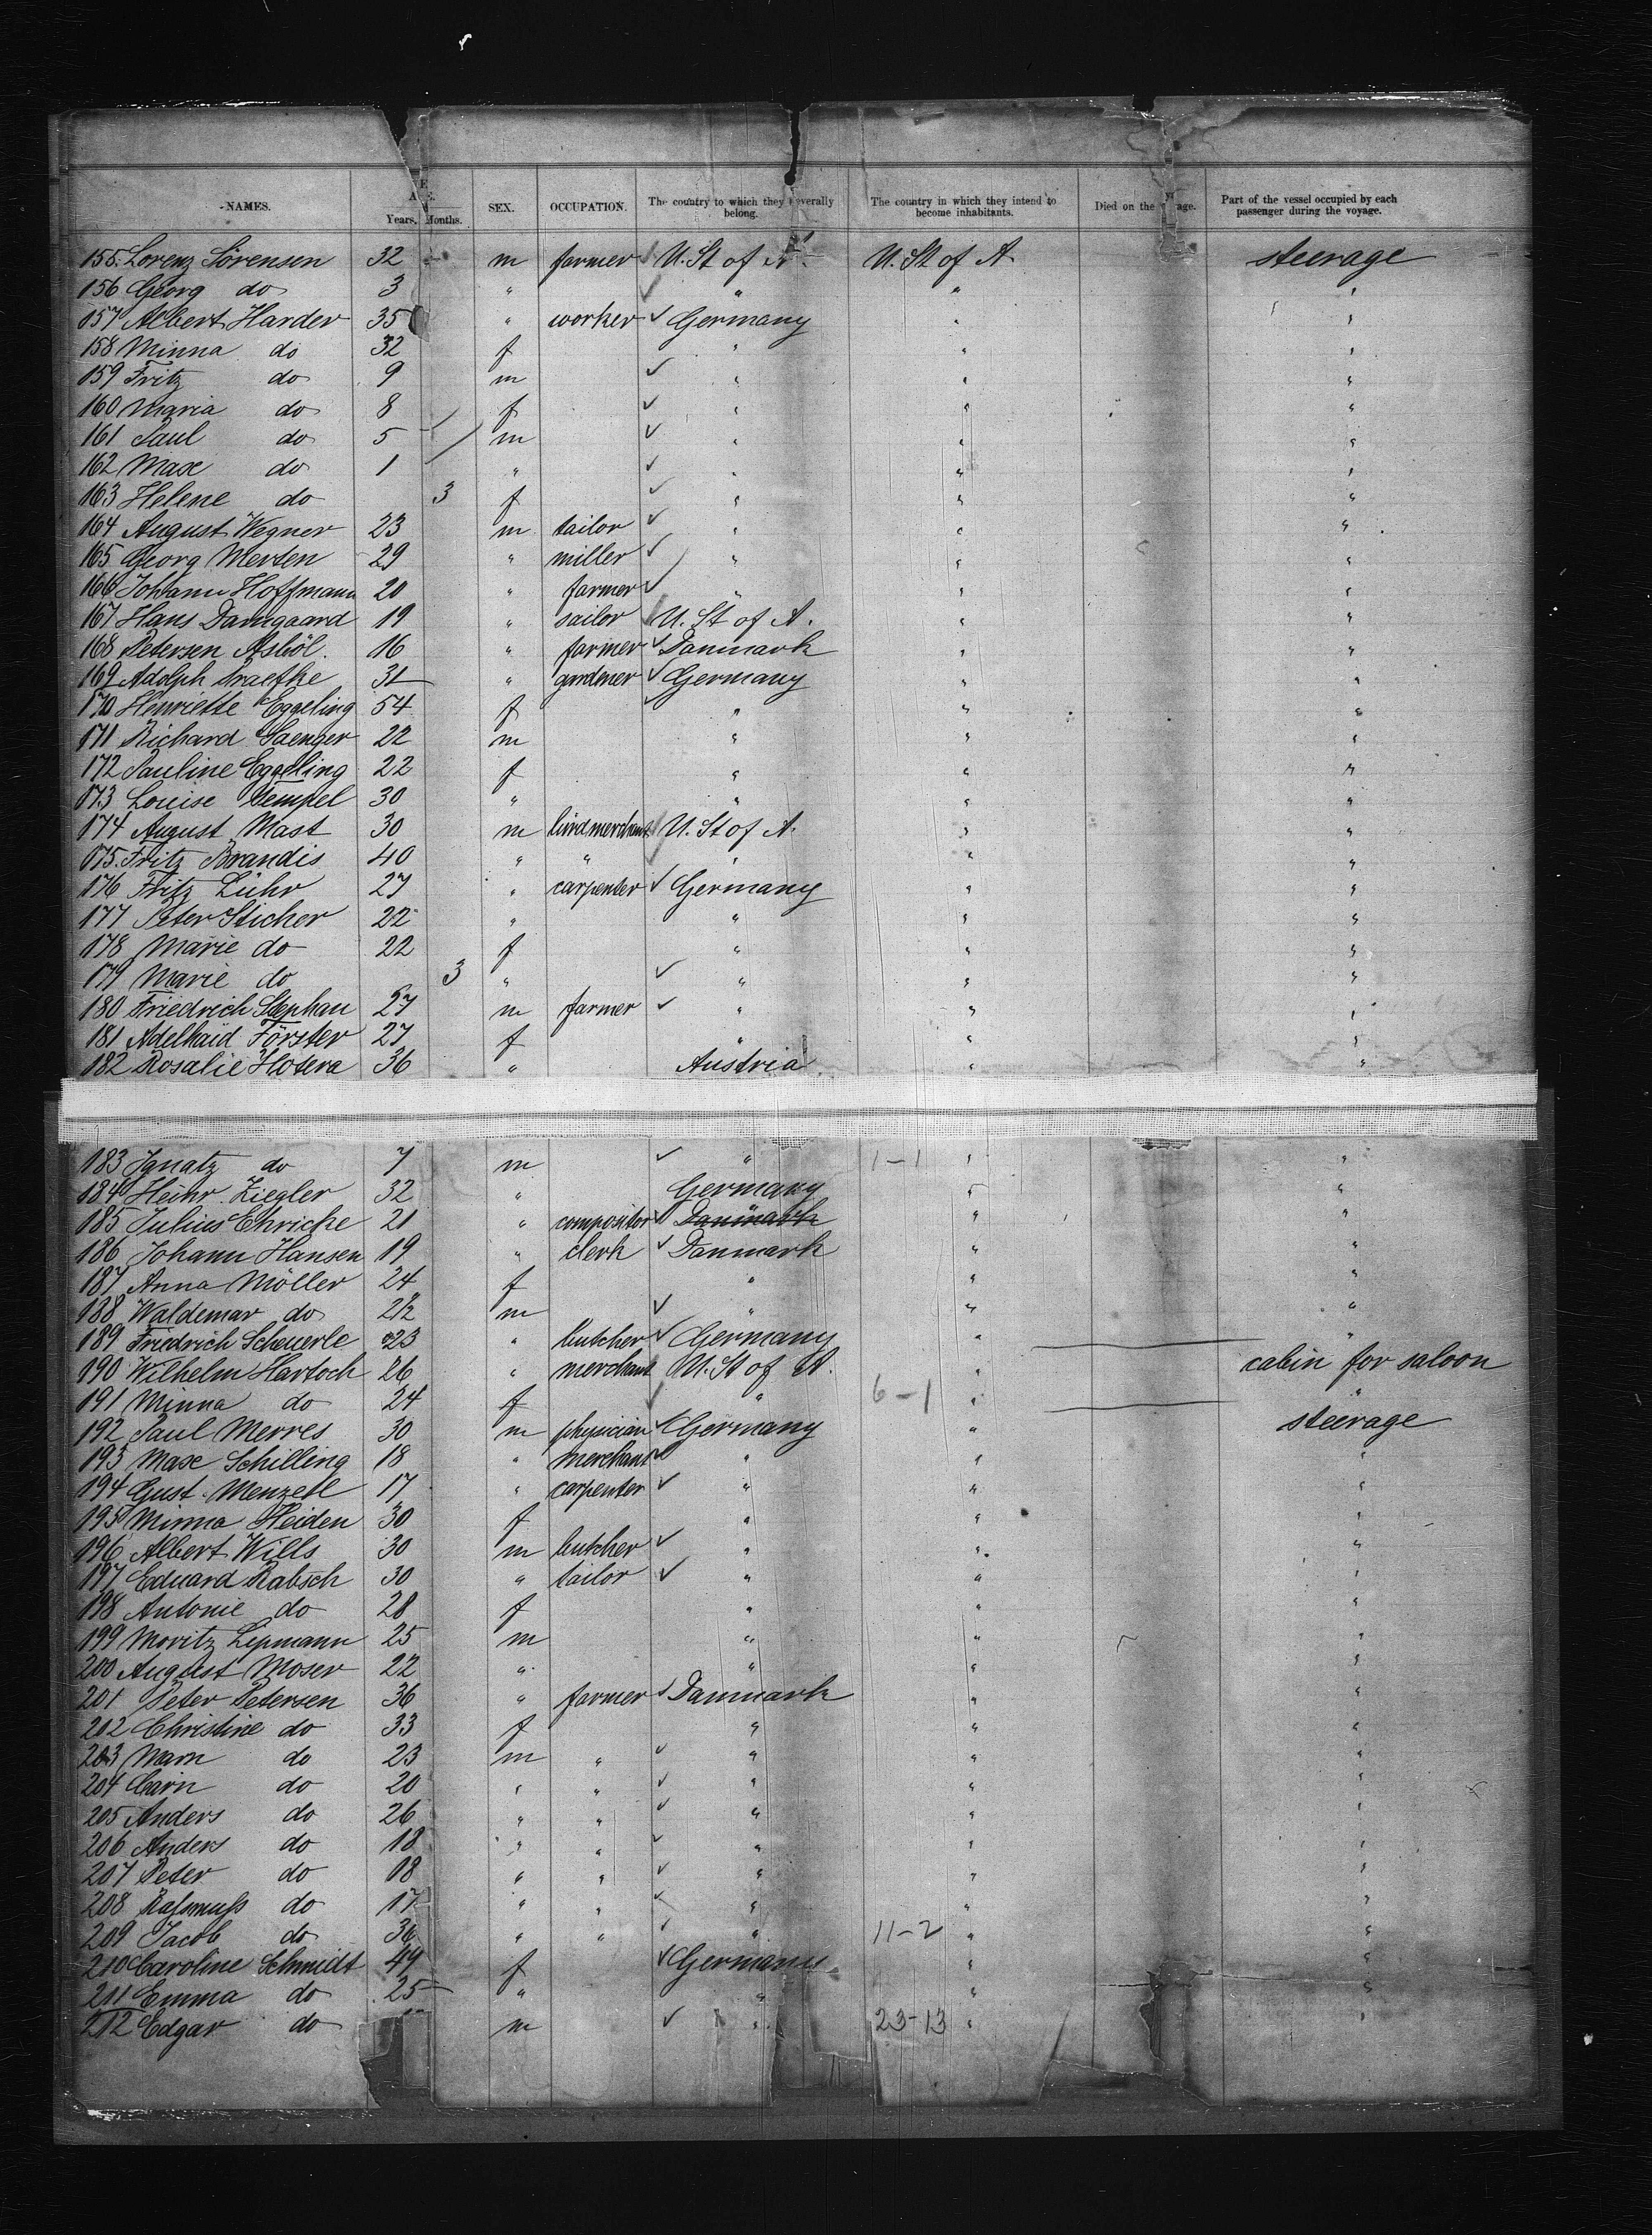 NAMES. AGE. Years. Months. SEX. OCCUPATION. The country to which they severally belong. The country in which they intend to become inhabitants. Died on the voyage. Part of the vessel occupied by each passenger during the voyage.
155. Lorenz Sörensen 32 m farmer U. St of A. U. St of A. steerage
156 Georg do 3 " " " "
157 Albert Harder 35 " worker Germany " "
158 Minna do 32 f " " "
159 Fritz do 9 m " " "
160 Maria do 8 f " " "
161 Paul do 5 m " " "
162 Max do 1 " " " "
163 Helene do 3 f " " "
164 August Wegner 23 m tailor " " "
165 Georg Merten 29 " miller " " "
166 Johann Hoffmann 20 " farmer " " "
167 Hans Damgaard 19 " sailor U. St of A. " "
168 Petersen 16 " farmer Danmark " "
169 Adolph 31 " gardener Germany " "
170 Henriette Eggeling 54 f " " "
171 Richard Saenger 22 m " " "
172 Pauline Eggeling 22 f " " "
173 Louise Tempel 30 " " " "
174 August Mast 30 m birdmerchant U. St of A. " "
175. Fritz Brandis 40 " " " " "
176 Fritz Lühr 27 " carpenter Germany " "
177 Peter Sticher 22 " " " "
178 Marie do 22 f " " "
179 Marie do 3 " " " "
180 Friedrich Stephan 27 m farmer " " "
181 Adelhaid Förster 27 f " " "
182 Rosalie Hotera 36 " Austria " "
183 Ignatz do 7 m " 1-1 " "
184 Heinr. Ziegler 32 " Germany " "
185 Julius Ehricke 21 " compositor Danmark " "
186 Johann Hansen 19 " clerk Danmark " "
187 Anna Möller 24 f " " "
188 Waldemar do m " " "
189 Friedrich Scheuerle 23 " butcher Germany " "
190 Wilhelm Hartoch 26 " merchant U. St of A. " cabin for saloon
191 Minna do 24 f " 6-1 " "
192 Paul Merres 30 m physician Germany " steerage
193 Max Schilling 18 " merchant " " "
194 Gust. Menzell 17 " carpenter " " "
195 Minna Heiden 30 f " " "
196 Albert Wills 30 m butcher " " "
197 Eduard Rabsch 30 " tailor " " "
198 Antonie do 28 f " " "
199 Moritz Lipmann 25 m " " "
200 August Moser 22 " " " "
201 Peter Petersen 36 " farmer Danmark " "
202 Christine do 33 f " " "
203 do 23 m " " " "
204 do 20 " " " " "
205 Anders do 26 " " " " "
206 Anders do 18 " " " " "
207 Peter do 18 " " " " "
208 Rasmuss do 17 " " " " "
209 Jacob do 36 " " " 11-2 " "
210 Caroline Schmidt 49 f Germany " "
211 Emma do 25 " " " "
212 Edgar do m " 23-13 " "